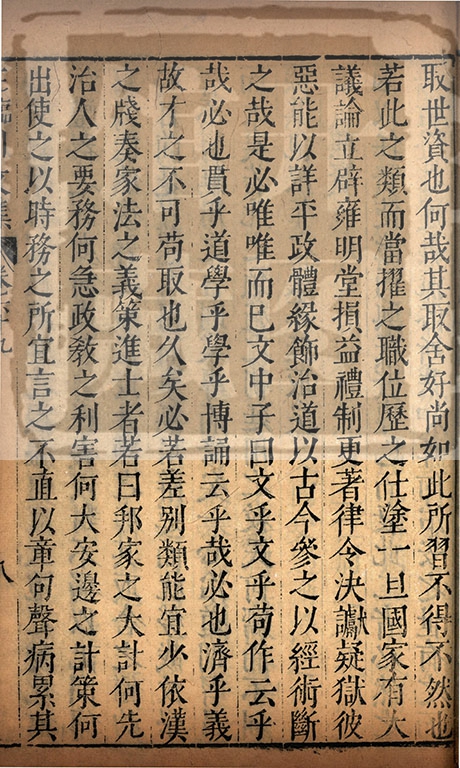 取世資也何哉其取舍好尚如此所習不得不然也
若此之類而當擢之職位歷之仕塗一旦國家有大
議論立辟雍明堂損益禮制更著律令決讞疑獄彼
惡能以詳平政體緣飾治道以古今參之以經術斷
之哉是必唯唯而已文中子曰文乎文乎苟作云乎
哉必也貫乎道學乎學乎博誦云乎哉必也濟乎義
故才之不可苟取也久矣必若差別類能宜少依漢
之牋奏家法之義策進士者若曰邦家之大計何先
治人之要務何急政敎之利害何大安邊之計策何
出使之以時務之所宜言之不直以章句聲病累其